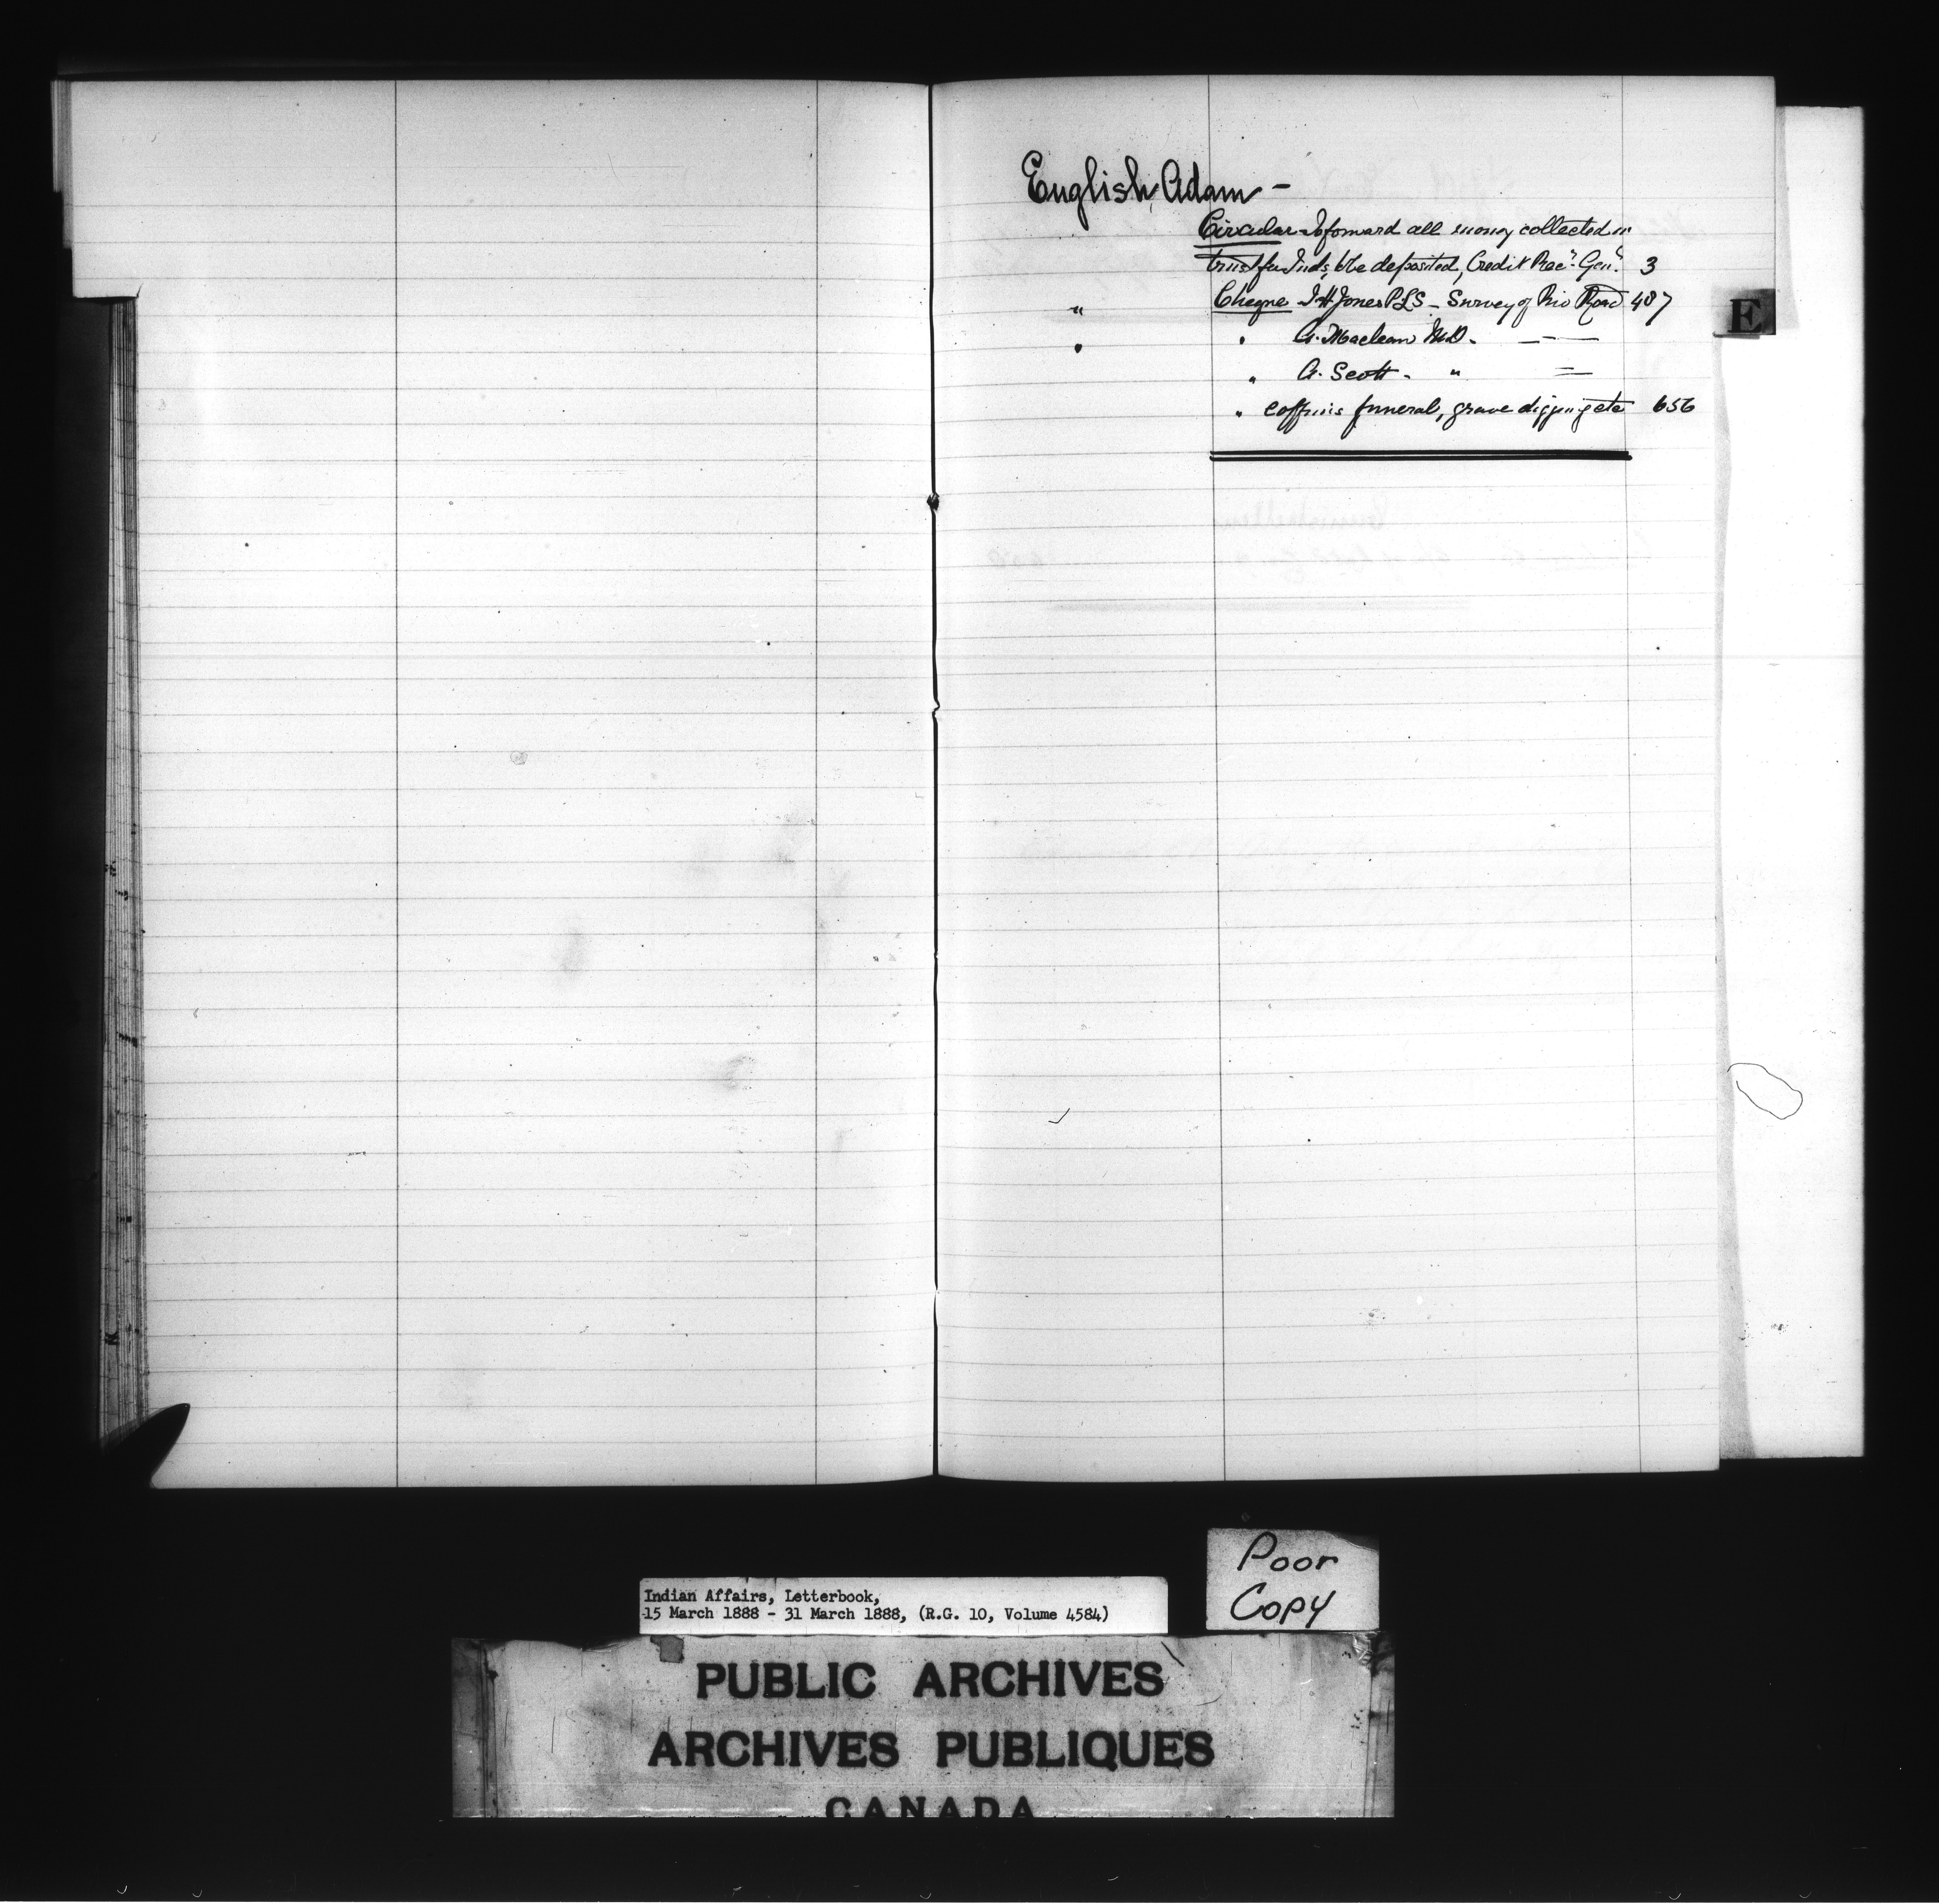 English, Adam -
Circular To forward all money collected in
trust for Inds, to be deposited, Credit Recr. Genl. 3
" Cheque J H Jones PLS - Survey of Road 487
" " A. Maclean M.D. - — - —
" A. Scott - " =
" coffins funeral, grave digging etc 656
E
Poor
Copy
Indian Affairs, Letterbook,
15 March 1888 - 31 March 1888, (R.G. 10, Volume 4584)
PUBLIC ARCHIVES
ARCHIVES PUBLIQUES
CANADA